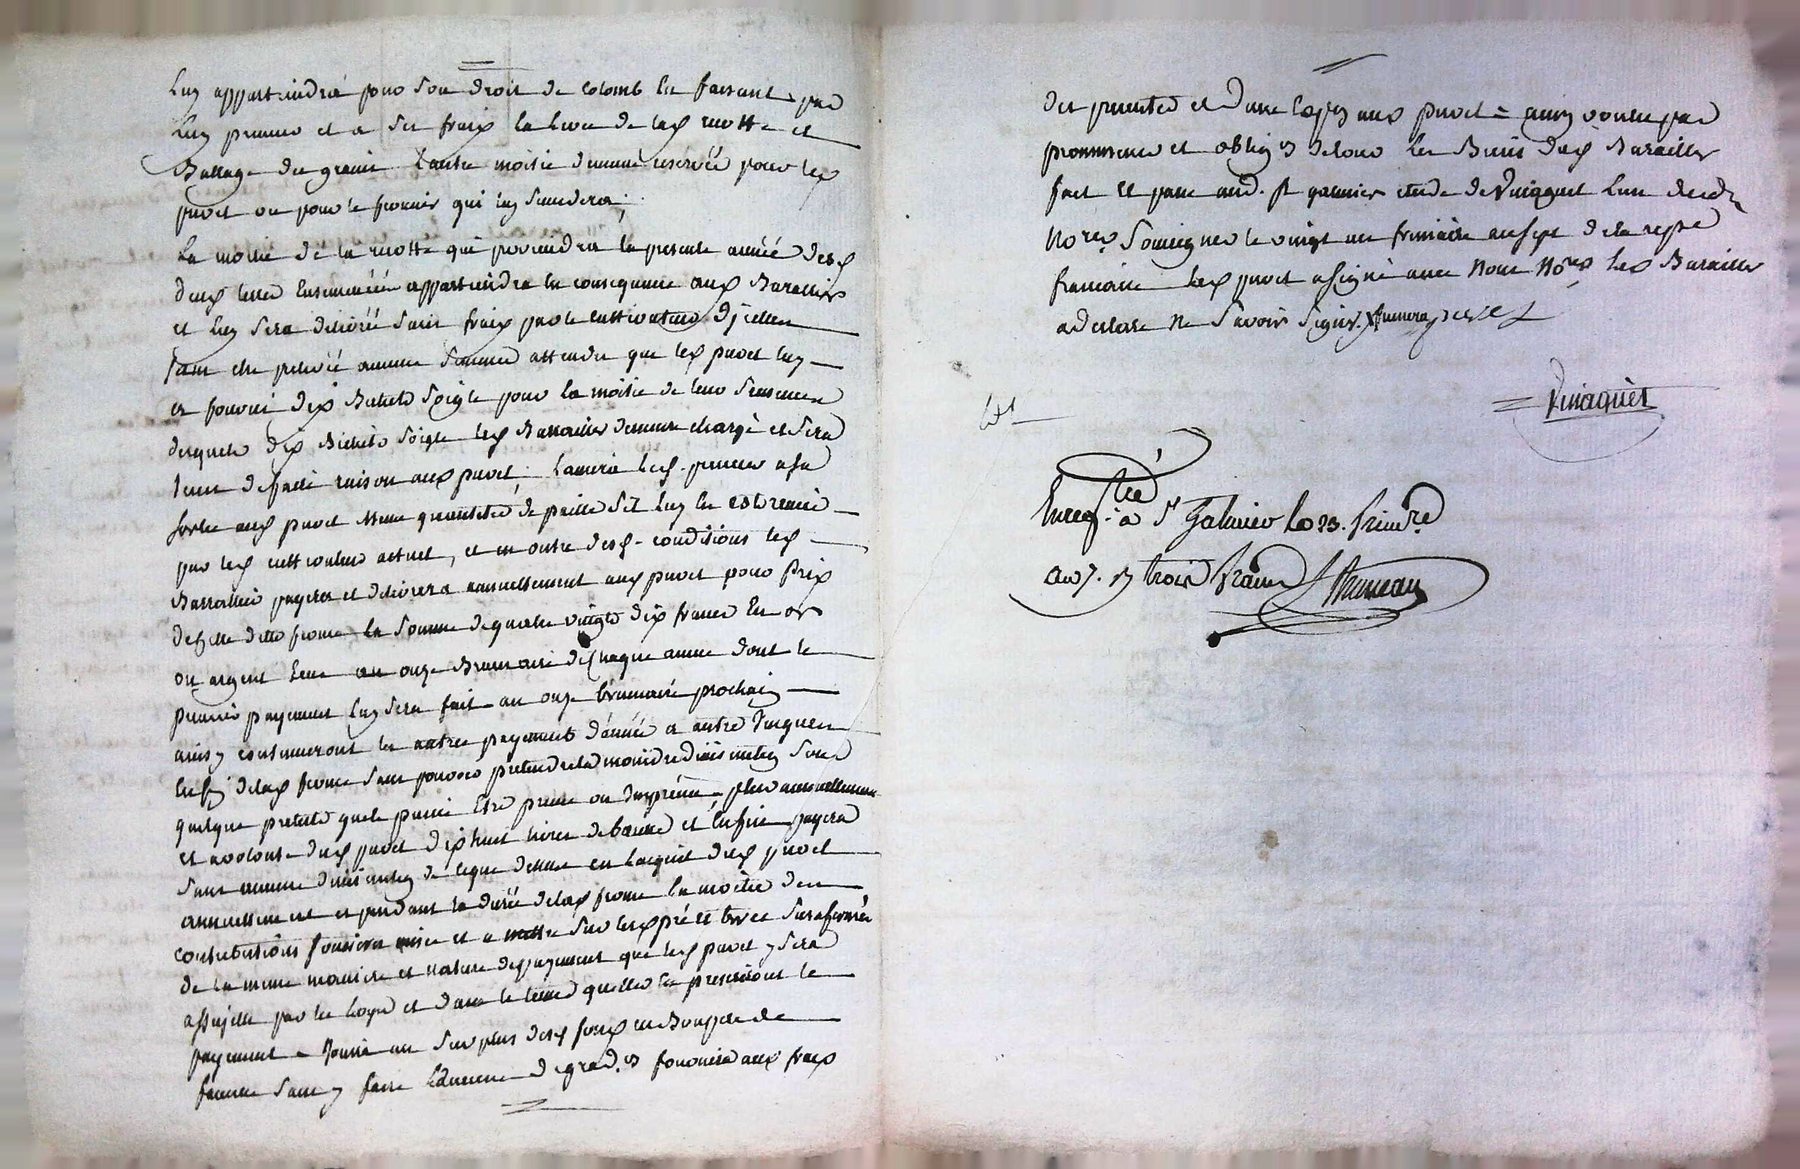 luy appartiendra pour son droit de colomb en faisant par
luy premier et a ses fraix la levee de lad recolte et
Battage du grain l'autre moitié demeure reservée pour led
pivot ou pour le fermier qui luy succedera;
La moitié de la recolte qui proviendra la presente année desd
deux terres Ensemencées appartiendra en consequence aud Barallier
et luy sera delivrée sans fraix par le cultivateur d'jcelles
sans etre prelevé aucune semence attendu que led pivot luy
a fourni dix Bichets soigle pour la moitié de leur semence
desquels dix Bichets soigle led Barrallier demeure chargé et sera
tenu de faire raison aud pivot; laissera led preneur a sa
sortie aud pivot meme quantité de paille s'il luy en est remis
par led cultivateur actuel, et en outre desd conditions led
Barrallier payera et delivrera annuellement aud pivot pour prix
de cette ditte ferme la somme de quatre vingts dix francs En or
ou argent au onze Brumaire de chaque année dont le
premier payement luy sera fait au onze brumaire prochain
ainsy continueront les autres payements d'année a autre jusques
En fin de lad ferme sans pouvoir pretendre la moindre diminution sous
quelque pretexte que ce puisse Etre prevu ou Imprévu, plus annuellement
et a volonté dud pivot dixhuit livres de beurre et Enfin payera
sans aucune diminution de ce que dessus en l'acquit dud pivot
annuellement et pendant la durée de lad ferme la moitié des
contributions foncieres mise et a mettre sur lesd pré et terres
de la meme maniere et nature de payement que led pivot y sera
assujetti par les Loyx et dans le tems qu'elles en prescriront le
payement - jouira au surplus desd fonds en Bon pere de
famille sans y faire aucune degrad.on fournira aux fraix
des presentes et d'une copie aud pivot = ainsy voulu par
promesse et oblig.on de tous les Biens dud Barallier
fait et passé aud. St galmier etude de Vinaguet l'un desd
No.res soussignés le vingt un frimaire an sept de la rep.e
francaise led pivot a signé avec Nous No.res led Barallier
a declaré Ne savoir signer.
Vinaguet
Enreg.tré à St Galmier le 23. frim.re
an 7. R trois francs